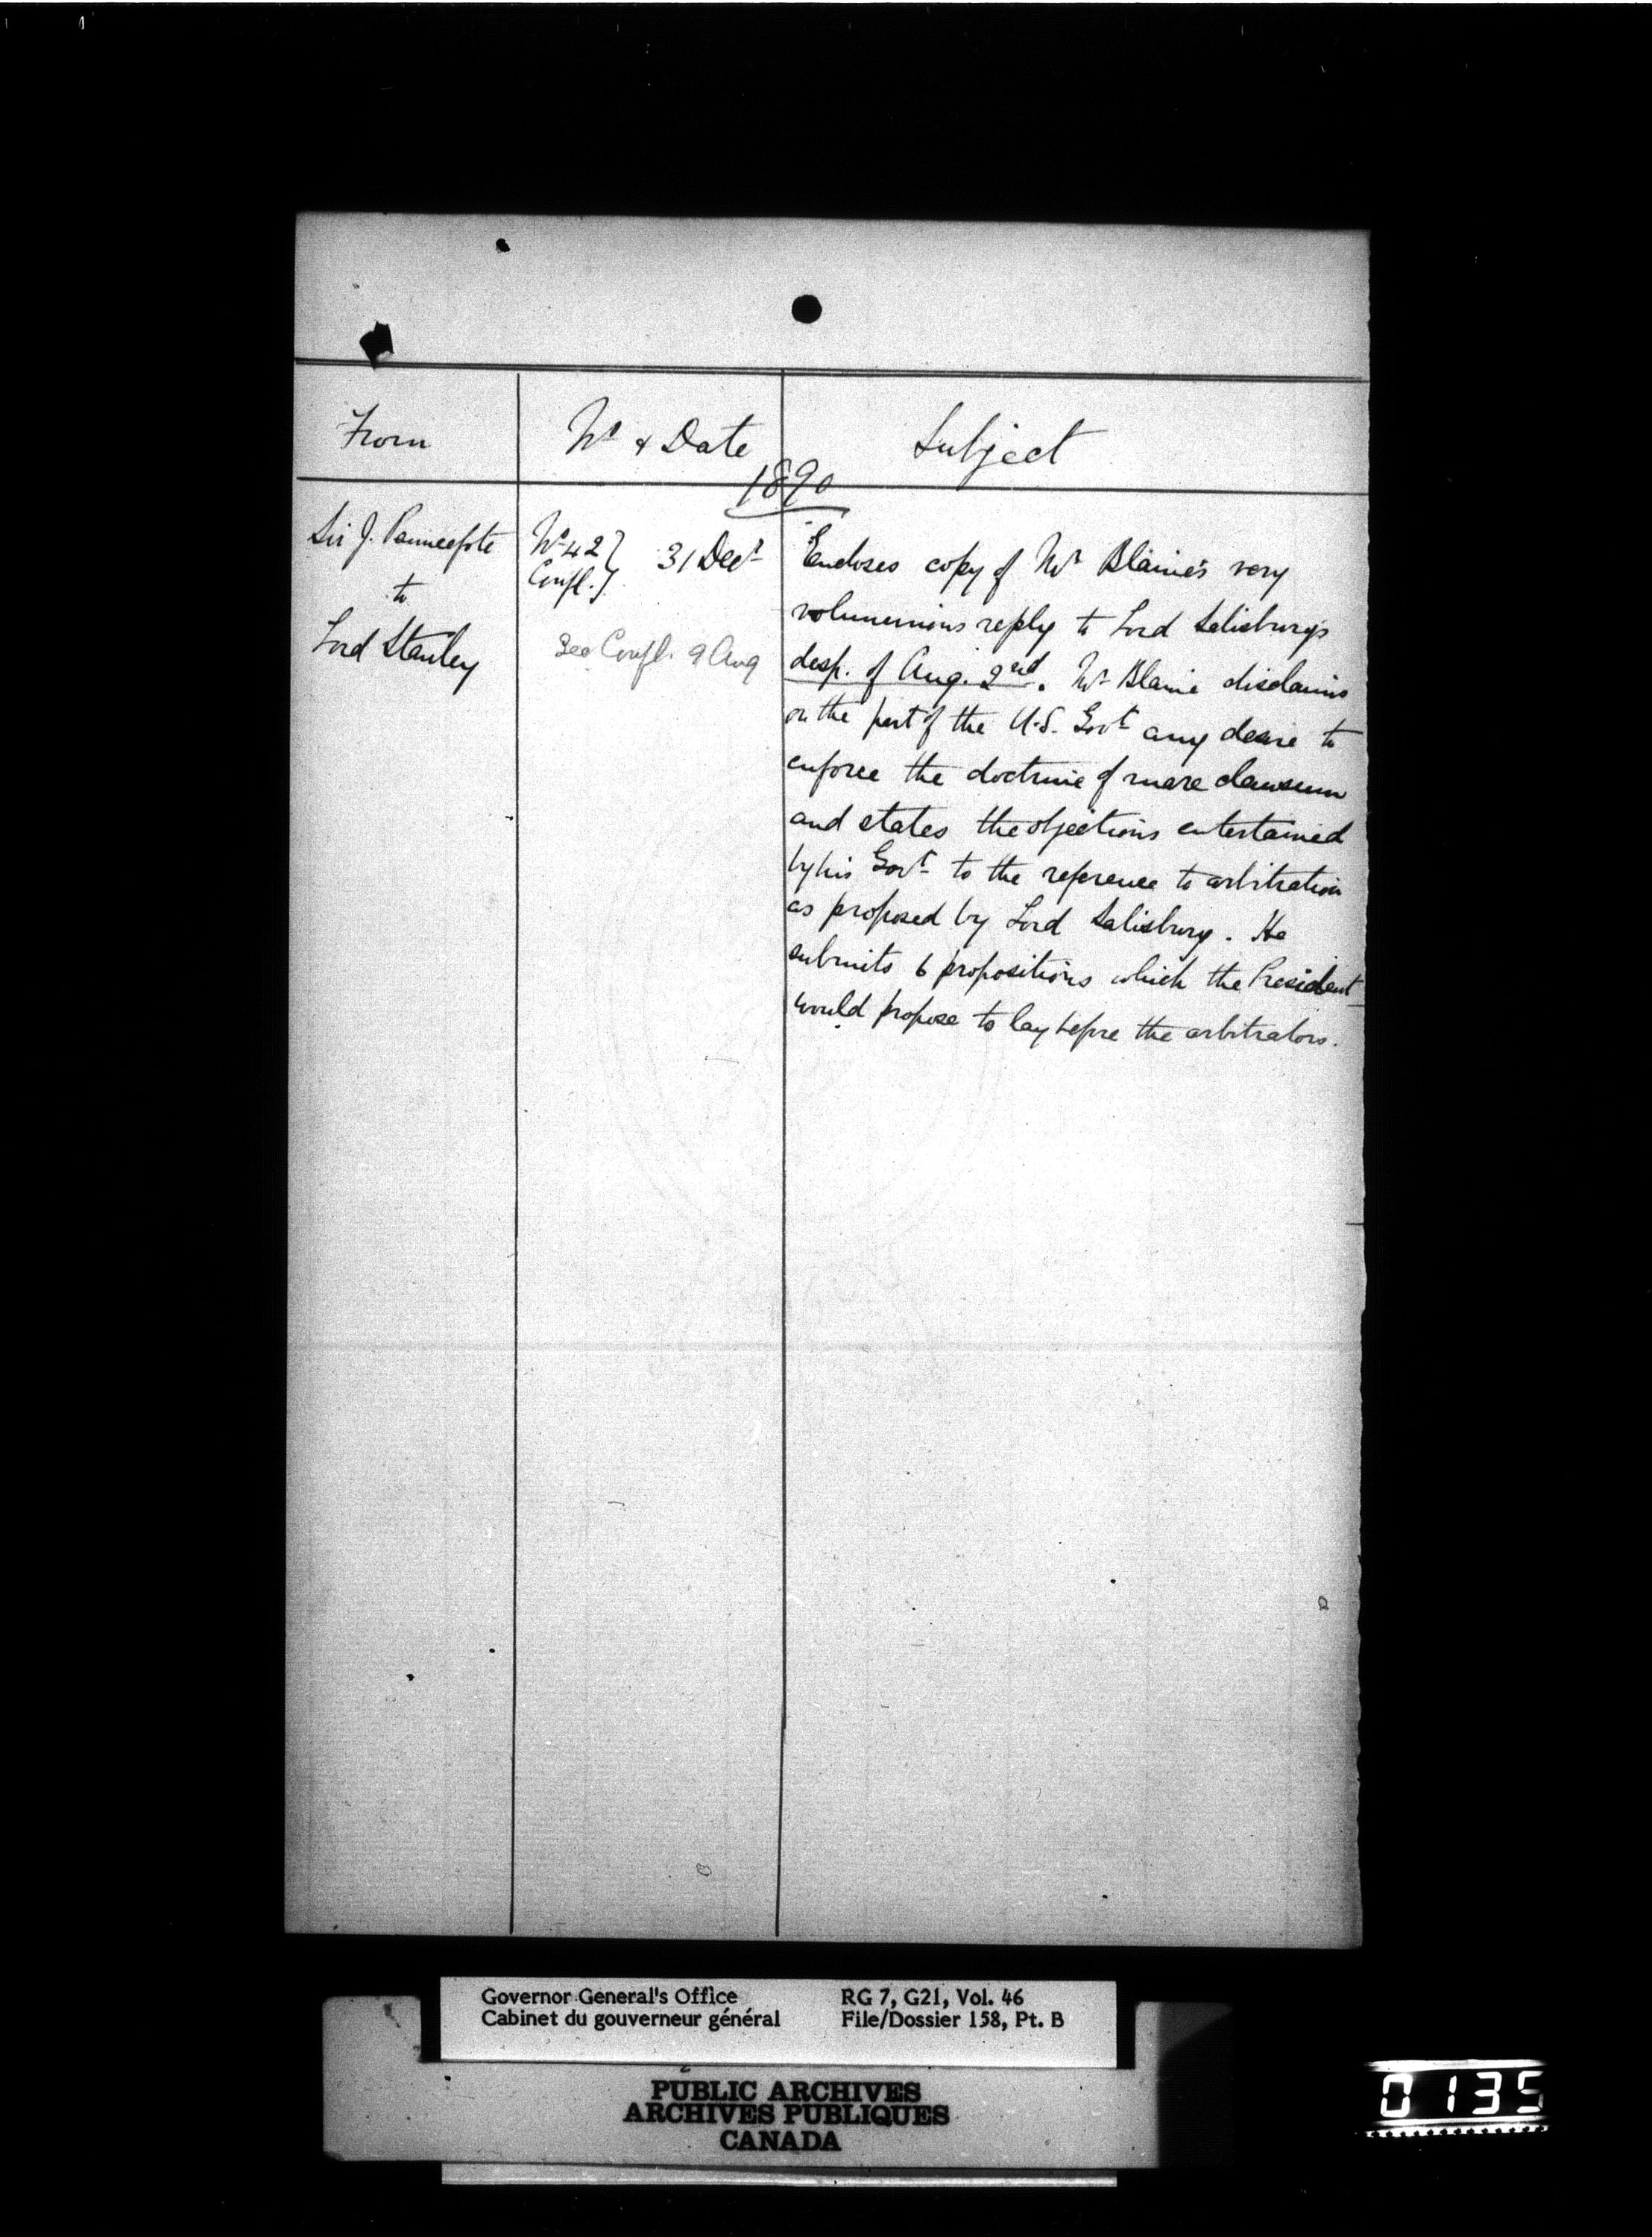 From
No & Date
Subject
1890
Sir J. Pauncefote
to
Lord Stanley
No 42 }
Confl. }
31 Decr
See Confl. 9 Aug
Encloses copy of Mr Blaine's very
volumenious reply to Lord Salisbury's
desp. of Aug. 2nd. Mr Blaine disclaims
on the part of the U.S. Govt any desire to
enforce the doctrine of mare clausum
and states the objections entertained
by his Govt to the reference to arbitration
as proposed by Lord Salisbury. He
submits 6 propositions which the President
would propose to lay before the arbitrators.
Governor General's Office
Cabinet du gouverneur général
RG 7, G21, Vol. 46
File/Dossier 158, Pt. B
PUBLIC ARCHIVES
ARCHIVES PUBLIQUES
CANADA
0135